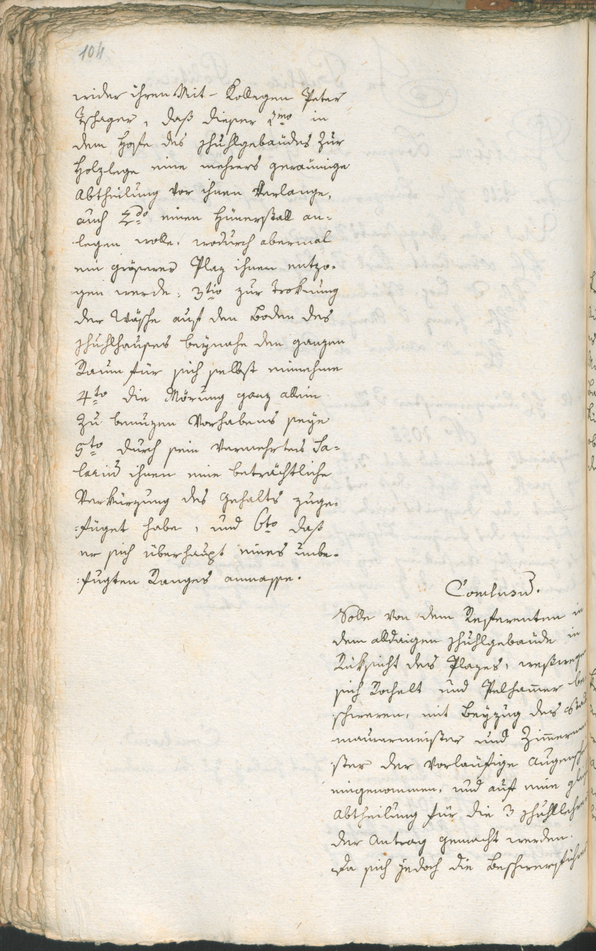 104
wider ihren Mit-Kollegen Peter
Tschager, daß dieser 1mo in
dem Hofe des Schuhlgebaudes zur
Holzlege eine mehrers geraumige
Abtheilung vor ihnen Verlange,
auch 2do einen Hünerstall an-
legen wolle, wodurch abermal
ein gröseres Plaz ihnen entzo-
gen werde: 3tio zur troknung
der Wäsche auf den Boden des
Schuhlhauses beynahe den ganzen
Raum für sich selbst einnehme
4to die ganz allein
zu benuzen Vorhabens seye
5to durch sein Vermehrtes Sa-
larium ihnen eine beträchtliche
Verkürzung des Gehalts zuge-
:füget habe, und 6to daß
er sich überhaupt eines unbe-
:fugten Ranges anmasse.
Conclusum.
Solle von dem Referenten in
dem alldaigen Schuhlgebaude in
Rüksicht des Plazes, weßwegen
sich Rochelt und Pelhamer be
schweren, mit Beyzug des Stadt
maurermeister und Zimmermei
ster der Vorlaufige Augensch
eingenommen, und auf eine
Abtheilung für die 3 Schuhllehrer
der Antrag gemacht werden.
Da sich jedoch die Beschwerführer